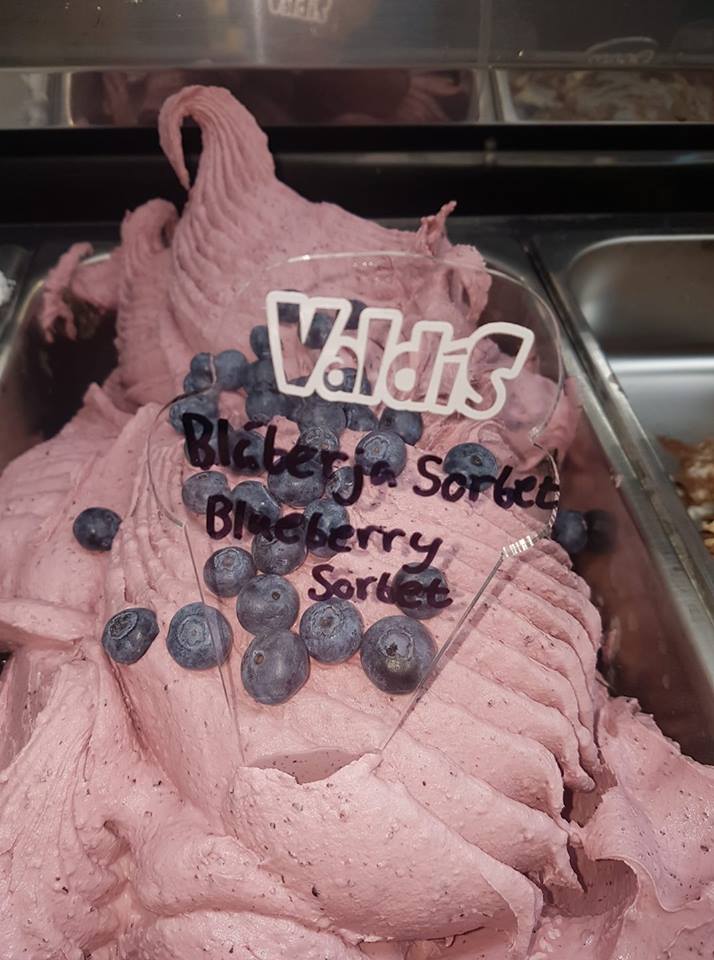 Valdís
Bláberja Sorbet
Blueberry
Sorbet